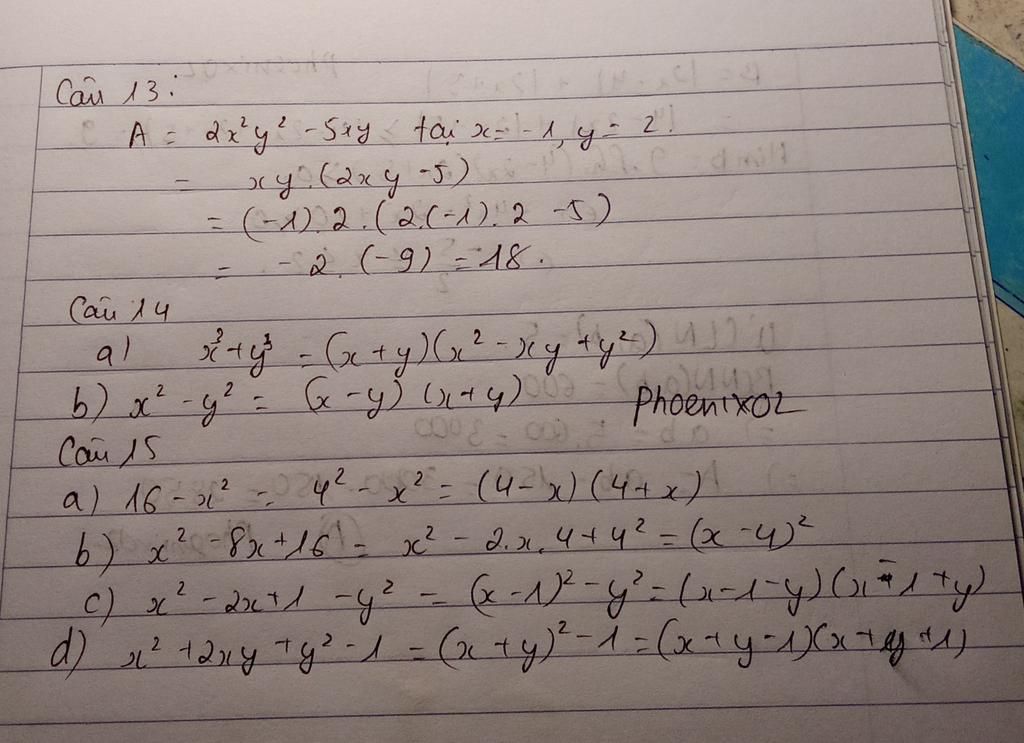 Câu 13:
A = 2x²y² - 5xy tại x = -1, y = 2.
= xy.(2xy - 5)
= (-1).2.(2.(-1).2 - 5)
= -2.(-9) = 18.
Câu 14
a) x³+y³ = (x+y)(x² - xy + y²)
b) x² - y² = (x-y)(x+y)
Phoenix02
Câu 15
a) 16 - x² = 4² - x² = (4-x)(4+x)
b) x² - 8x + 16 = x² - 2.x.4 + 4² = (x-4)²
c) x² - 2x + 1 - y² = (x-1)² - y² = (x-1-y)(x-1+y)
d) x² + 2xy + y² - 1 = (x+y)² - 1 = (x+y-1)(x+y+1)